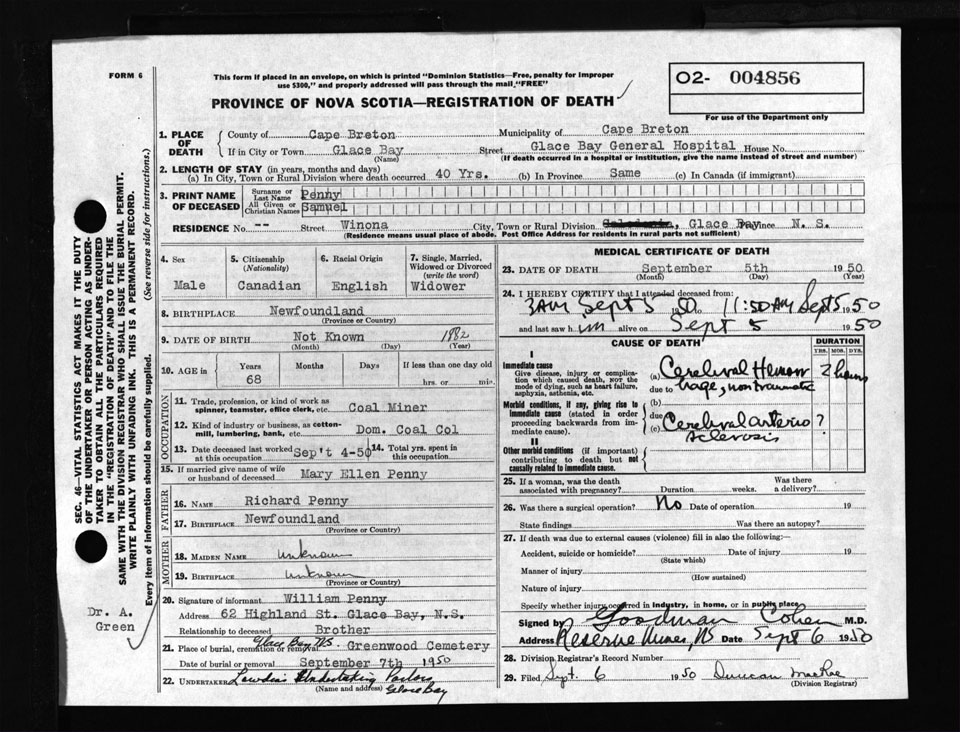 FORM 6
This form if placed in an envelope, on which is printed "Dominion Statistics—Free, penalty for improper
use $300," and properly addressed will pass through the mail "FREE"
PROVINCE OF NOVA SCOTIA—REGISTRATION OF DEATH
O2- 004856
For use of the Department only
1. PLACE OF DEATH
County of Cape Breton Municipality of Cape Breton
If in City or Town Glace Bay Street Glace Bay General Hospital House No.
(Name) (If death occurred in a hospital or institution, give the name instead of street and number)
2. LENGTH OF STAY (in years, months and days)
(a) In City, Town or Rural Division where death occurred 40 Yrs. (b) In Province Same (c) In Canada (if immigrant)
3. PRINT NAME OF DECEASED
Surname or Last Name Penny
All Given or Christian Names Samuel
RESIDENCE No. -- Street Winona City, Town or Rural Division , Glace Bay Province N. S.
(Residence means usual place of abode. Post Office Address for residents in rural parts not sufficient)
4. Sex
Male
5. Citizenship
(Nationality)
Canadian
6. Racial Origin
English
7. Single, Married,
Widowed or Divorced
(write the word)
Widower
8. BIRTHPLACE Newfoundland
(Province or Country)
9. DATE OF BIRTH Not Known 1882
(Month) (Day) (Year)
10. AGE in Years Months Days If less than one day old
68 hrs. or min.
OCCUPATION
11. Trade, profession, or kind of work as
spinner, teamster, office clerk, etc. Coal Miner
12. Kind of industry or business, as cotton-
mill, lumbering, bank, etc. Dom. Coal Col
13. Date deceased last worked
at this occupation Sep't 4-50
14. Total yrs. spent in
this occupation
15. If married give name of wife
or husband of deceased Mary Ellen Penny
FATHER
16. Name Richard Penny
17. Birthplace Newfoundland
(Province or Country)
MOTHER
18. Maiden Name unknown
19. Birthplace unknown
(Province or Country)
20. Signature of informant William Penny
Address 62 Highland St. Glace Bay, N.S.
Relationship to deceased Brother
21. Place of burial, cremation or removal Glace Bay NS. Greenwood Cemetery
Date of burial or removal September 7th 1950
22. UNDERTAKER Undertaking Parlors
(Name and address) Glace Bay
MEDICAL CERTIFICATE OF DEATH
23. DATE OF DEATH September 5th 1950
(Month) (Day) (Year)
24. I HEREBY CERTIFY that I attended deceased from:
3 AM Sept 5 1950 to 11:50 AM Sept 5 1950
and last saw him alive on Sept 5 1950
CAUSE OF DEATH
DURATION
YRS. MOS. DYS.
I
Immediate cause
Give disease, injury or complica-
tion which caused death, NOT the
mode of dying, such as heart failure,
asphyxia, asthenia, etc.
(a) Cerebral Hemorr 2 hours
due to hage, nontraumatic
Morbid conditions, if any, giving rise to
immediate cause (stated in order
proceeding backwards from im-
mediate cause).
(b)
due to
(c) Cerebral arterio ?
sclerosis
II
Other morbid conditions (if important)
contributing to death but not
causally related to immediate cause.
25. If a woman, was the death
associated with pregnancy? Duration weeks. Was there
a delivery?
26. Was there a surgical operation? No Date of operation 19
State findings Was there an autopsy?
27. If death was due to external causes (violence) fill in also the following:—
Accident, suicide or homicide? Date of injury 19
(State which)
Manner of injury
(How sustained)
Nature of injury
Specify whether injury occurred in industry, in home, or in public place
Signed by Goodman Cohen M.D.
Address Reserve Mines, NS Date Sept 6 1950
28. Division Registrar's Record Number
29. Filed Sept. 6 1950 Duncan MacRae
(Division Registrar)
SEC. 46—VITAL STATISTICS ACT MAKES IT THE DUTY
OF THE UNDERTAKER OR PERSON ACTING AS UNDER-
TAKER TO OBTAIN ALL THE PARTICULARS REQUIRED
IN THE "REGISTRATION OF DEATH" AND TO FILE THE
SAME WITH THE DIVISION REGISTRAR WHO SHALL ISSUE THE BURIAL PERMIT.
WRITE PLAINLY WITH UNFADING INK. THIS IS A PERMANENT RECORD.
Every item of information should be carefully supplied. (See reverse side for instructions.)
Dr. A.
Green